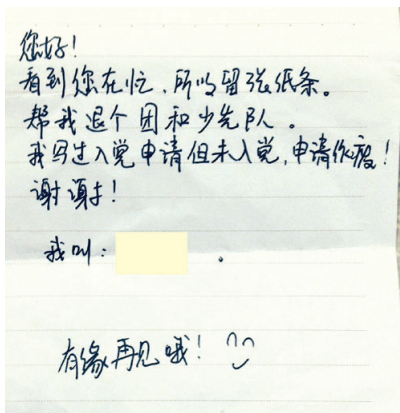 您好!
看到您在忙，所以留张纸条。
帮我退个团和少先队。
我写过入党申请但未入党，申请作废!
谢谢!
我叫：。
有缘再见哦!